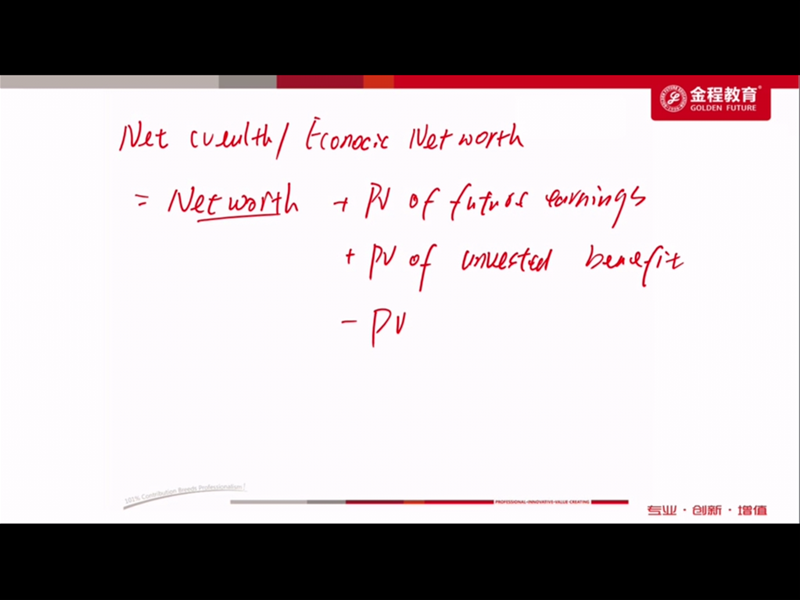 金程教育®
GOLDEN FUTURE
Net wealth / Economic Net worth
= Net worth + PV of future earnings
+ PV of unvested benefit
- PV
101% Contribution Breeds Professionalism!
PROFESSIONAL·INNOVATIVE·VALUE-CREATING
专业·创新·增值